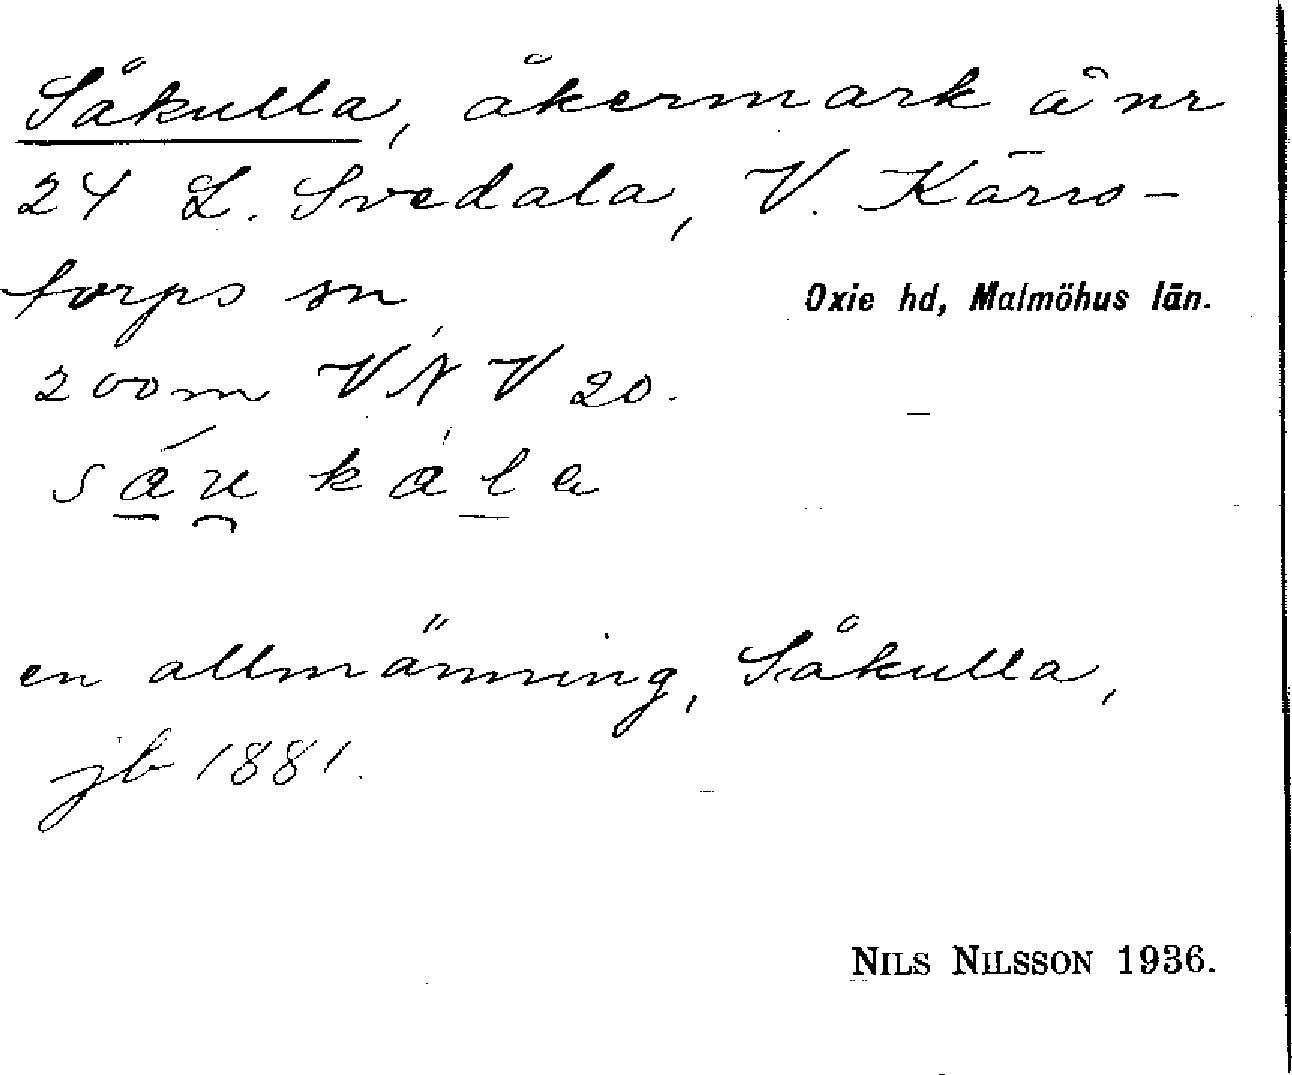 Såkulla, åkermark å nr
24 L. Svedala, V. Kärrs-
torps sn, Oxie hd, Malmöhus län.
200 m VNV 20.
en allmänning, Såkulla,
jb 1881.
NILS NILSSON 1936.